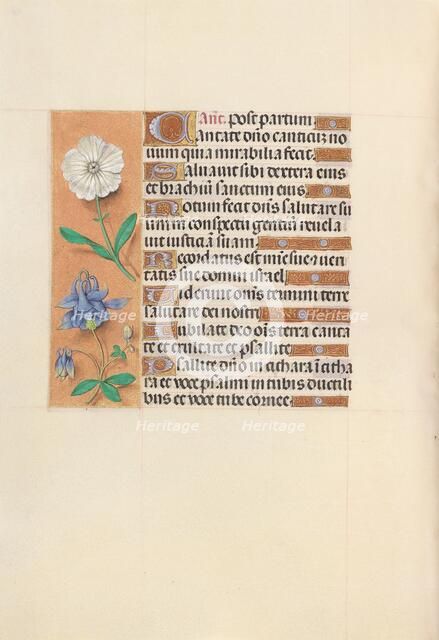 Añt. post partum
Cantate dño canticũ no
uum quia mirabilia fecit.
Saluauit sibi dextera eius
et brachiũ sanctum eius.
Notum fecit dñs salutare su
um in conspectu gentiũ reuela
uit iusticiã suam.
Recordatus est mise sue et veri
tatis sue domui israel
Viderunt oms termini terre
salutare dei nostri
Iubilate deo ois terra canta
te et exultate et psallite
Psallite dño in cithara ĩ citha
ra et voce psalmi in tubis ductili
bus et voce tube cornee.
Heritage
Heritage
Heritage
Heritage
Heritage
Heritage